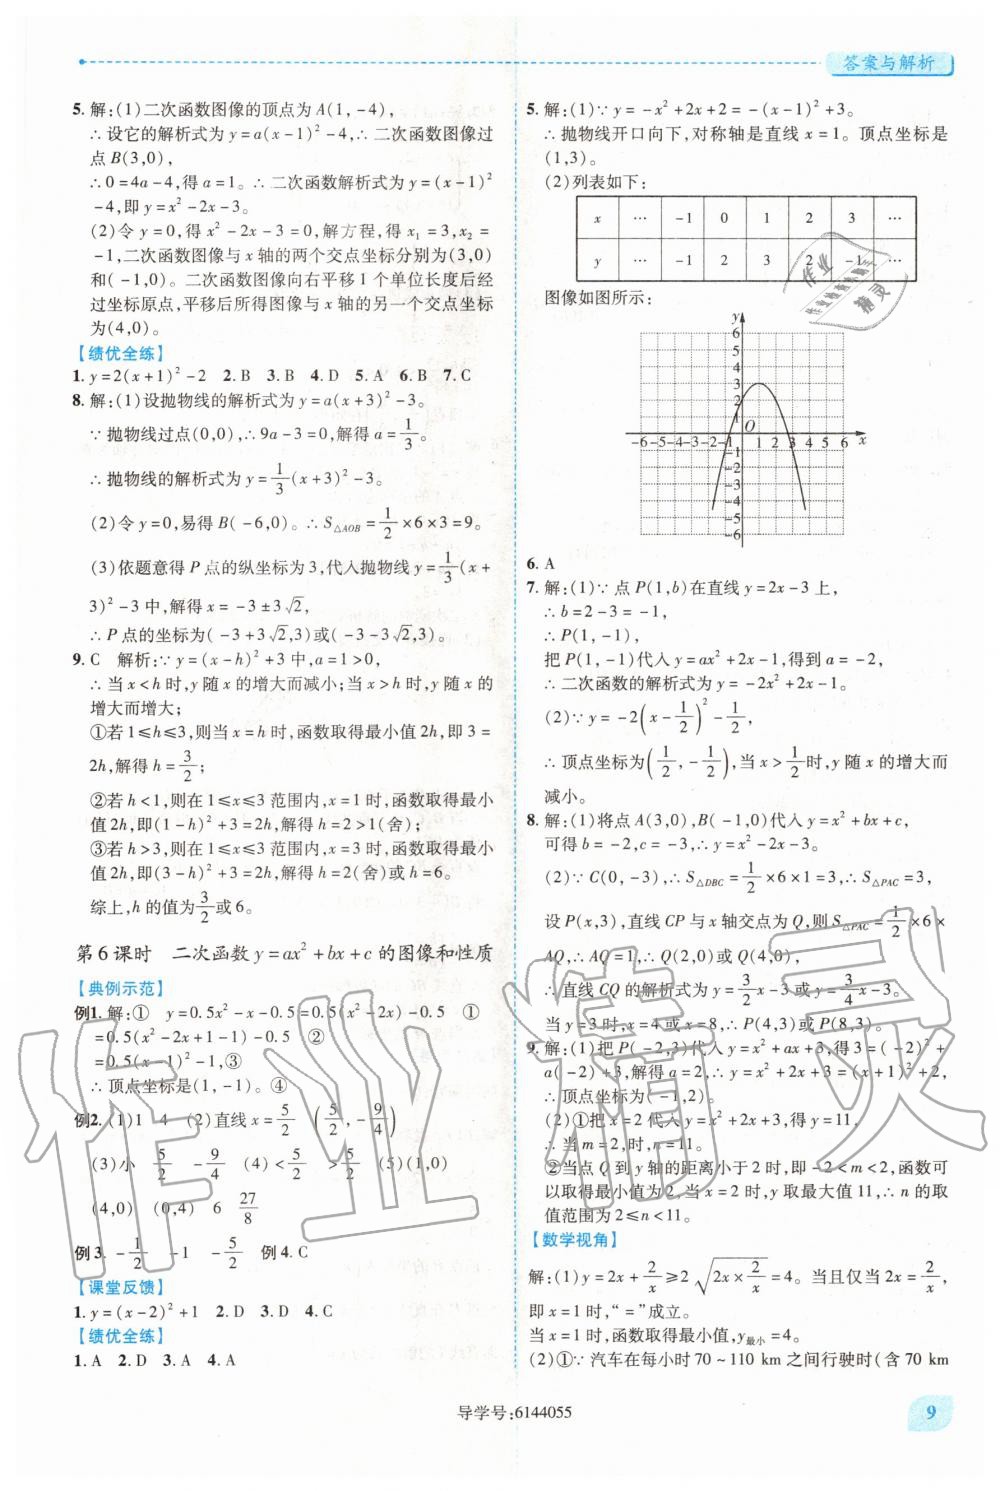 答案与解析
5. 解:(1)二次函数图像的顶点为A(1,-4),
∴设它的解析式为y=a(x-1)²-4,∴二次函数图像过
点B(3,0),
∴0=4a-4,得a=1。∴二次函数解析式为y=(x-1)²
-4,即y=x²-2x-3。
(2)令y=0,得x²-2x-3=0,解方程,得x₁=3,x₂=
-1,二次函数图像与x轴的两个交点坐标分别为(3,0)
和(-1,0)。二次函数图像向右平移1个单位长度后经
过坐标原点,平移后所得图像与x轴的另一个交点坐标
为(4,0)。
【绩优全练】
1. y=2(x+1)²-2 2. B 3. B 4. D 5. A 6. B 7. C
8. 解:(1)设抛物线的解析式为y=a(x+3)²-3。
∵抛物线过点(0,0),∴9a-3=0,解得a=1/3。
∴抛物线的解析式为y=1/3(x+3)²-3。
(2)令y=0,易得B(-6,0)。∴S△AOB=1/2×6×3=9。
(3)依题意得P点的纵坐标为3,代入抛物线y=1/3(x+
3)²-3中,解得x=-3±3√2,
∴P点的坐标为(-3+3√2,3)或(-3-3√2,3)。
9. C 解析:∵y=(x-h)²+3中,a=1>0,
∴当x<h时,y随x的增大而减小;当x>h时,y随x的
增大而增大;
①若1≤h≤3,则当x=h时,函数取得最小值2h,即3=
2h,解得h=3/2;
②若h<1,则在1≤x≤3范围内,x=1时,函数取得最小
值2h,即(1-h)²+3=2h,解得h=2>1(舍);
③若h>3,则在1≤x≤3范围内,x=3时,函数取得最小
值2h,即(3-h)²+3=2h,解得h=2(舍)或h=6。
综上,h的值为3/2或6。
第6课时 二次函数y=ax²+bx+c的图像和性质
【典例示范】
例1. 解:① y=0.5x²-x-0.5=0.5(x²-2x)-0.5 ①
=0.5(x²-2x+1-1)-0.5 ②
=0.5(x-1)²-1,③
∴顶点坐标是(1,-1)。④
例2. (1)1 4 (2)直线x=5/2 (5/2,-9/4)
(3)小 5/2 -9/4 (4)<5/2 >5/2 (5)(1,0)
(4,0) (0,4) 6 27/8
例3. -1/2 -1 -5/2 例4. C
【课堂反馈】
1. y=(x-2)²+1 2. D 3. D 4. C
【绩优全练】
1. A 2. D 3. A 4. A
5. 解:(1)∵y=-x²+2x+2=-(x-1)²+3。
∴抛物线开口向下,对称轴是直线x=1。顶点坐标是
(1,3)。
(2)列表如下:
x … -1 0 1 2 3 …
y … -1 2 3 2 -1 …
图像如图所示:
y
6
5
4
3
2
1
-6-5-4-3-2-1 O 1 2 3 4 5 6 x
-1
-2
-3
-4
-5
-6
6. A
7. 解:(1)∵点P(1,b)在直线y=2x-3上,
∴b=2-3=-1,
∴P(1,-1),
把P(1,-1)代入y=ax²+2x-1,得到a=-2,
∴二次函数的解析式为y=-2x²+2x-1。
(2)∵y=-2(x-1/2)²-1/2,
∴顶点坐标为(1/2,-1/2),当x>1/2时,y随x的增大而
减小。
8. 解:(1)将点A(3,0),B(-1,0)代入y=x²+bx+c,
可得b=-2,c=-3,∴y=x²-2x-3。
(2)∵C(0,-3),∴S△DBC=1/2×6×1=3,∴S△PAC=3,
设P(x,3),直线CP与x轴交点为Q,则S△PAC=1/2×6×
AQ,∴AQ=1,∴Q(2,0)或Q(4,0),
∴直线CQ的解析式为y=3/2x-3或y=3/4x-3。
当y=3时,x=4或x=8,∴P(4,3)或P(8,3)。
9. 解:(1)把P(-2,3)代入y=x²+ax+3,得3=(-2)²+
a(-2)+3,解得a=2。∴y=x²+2x+3=(x+1)²+2,
∴顶点坐标为(-1,2)。
(2)①把x=2代入y=x²+2x+3,求得y=11,
∴当m=2时,n=11。
②当点Q到y轴的距离小于2时,即-2<m<2,函数可
以取得最小值为2,当x=2时,y取最大值11,∴n的取
值范围为2≤n<11。
【数学视角】
解:(1)y=2x+2/x≥2√(2x×2/x)=4。当且仅当2x=2/x,
即x=1时,“=”成立。
当x=1时,函数取得最小值,y最小=4。
(2)①∵汽车在每小时70~110 km之间行驶时(含70 km
导学号:6144055
9
作业精灵